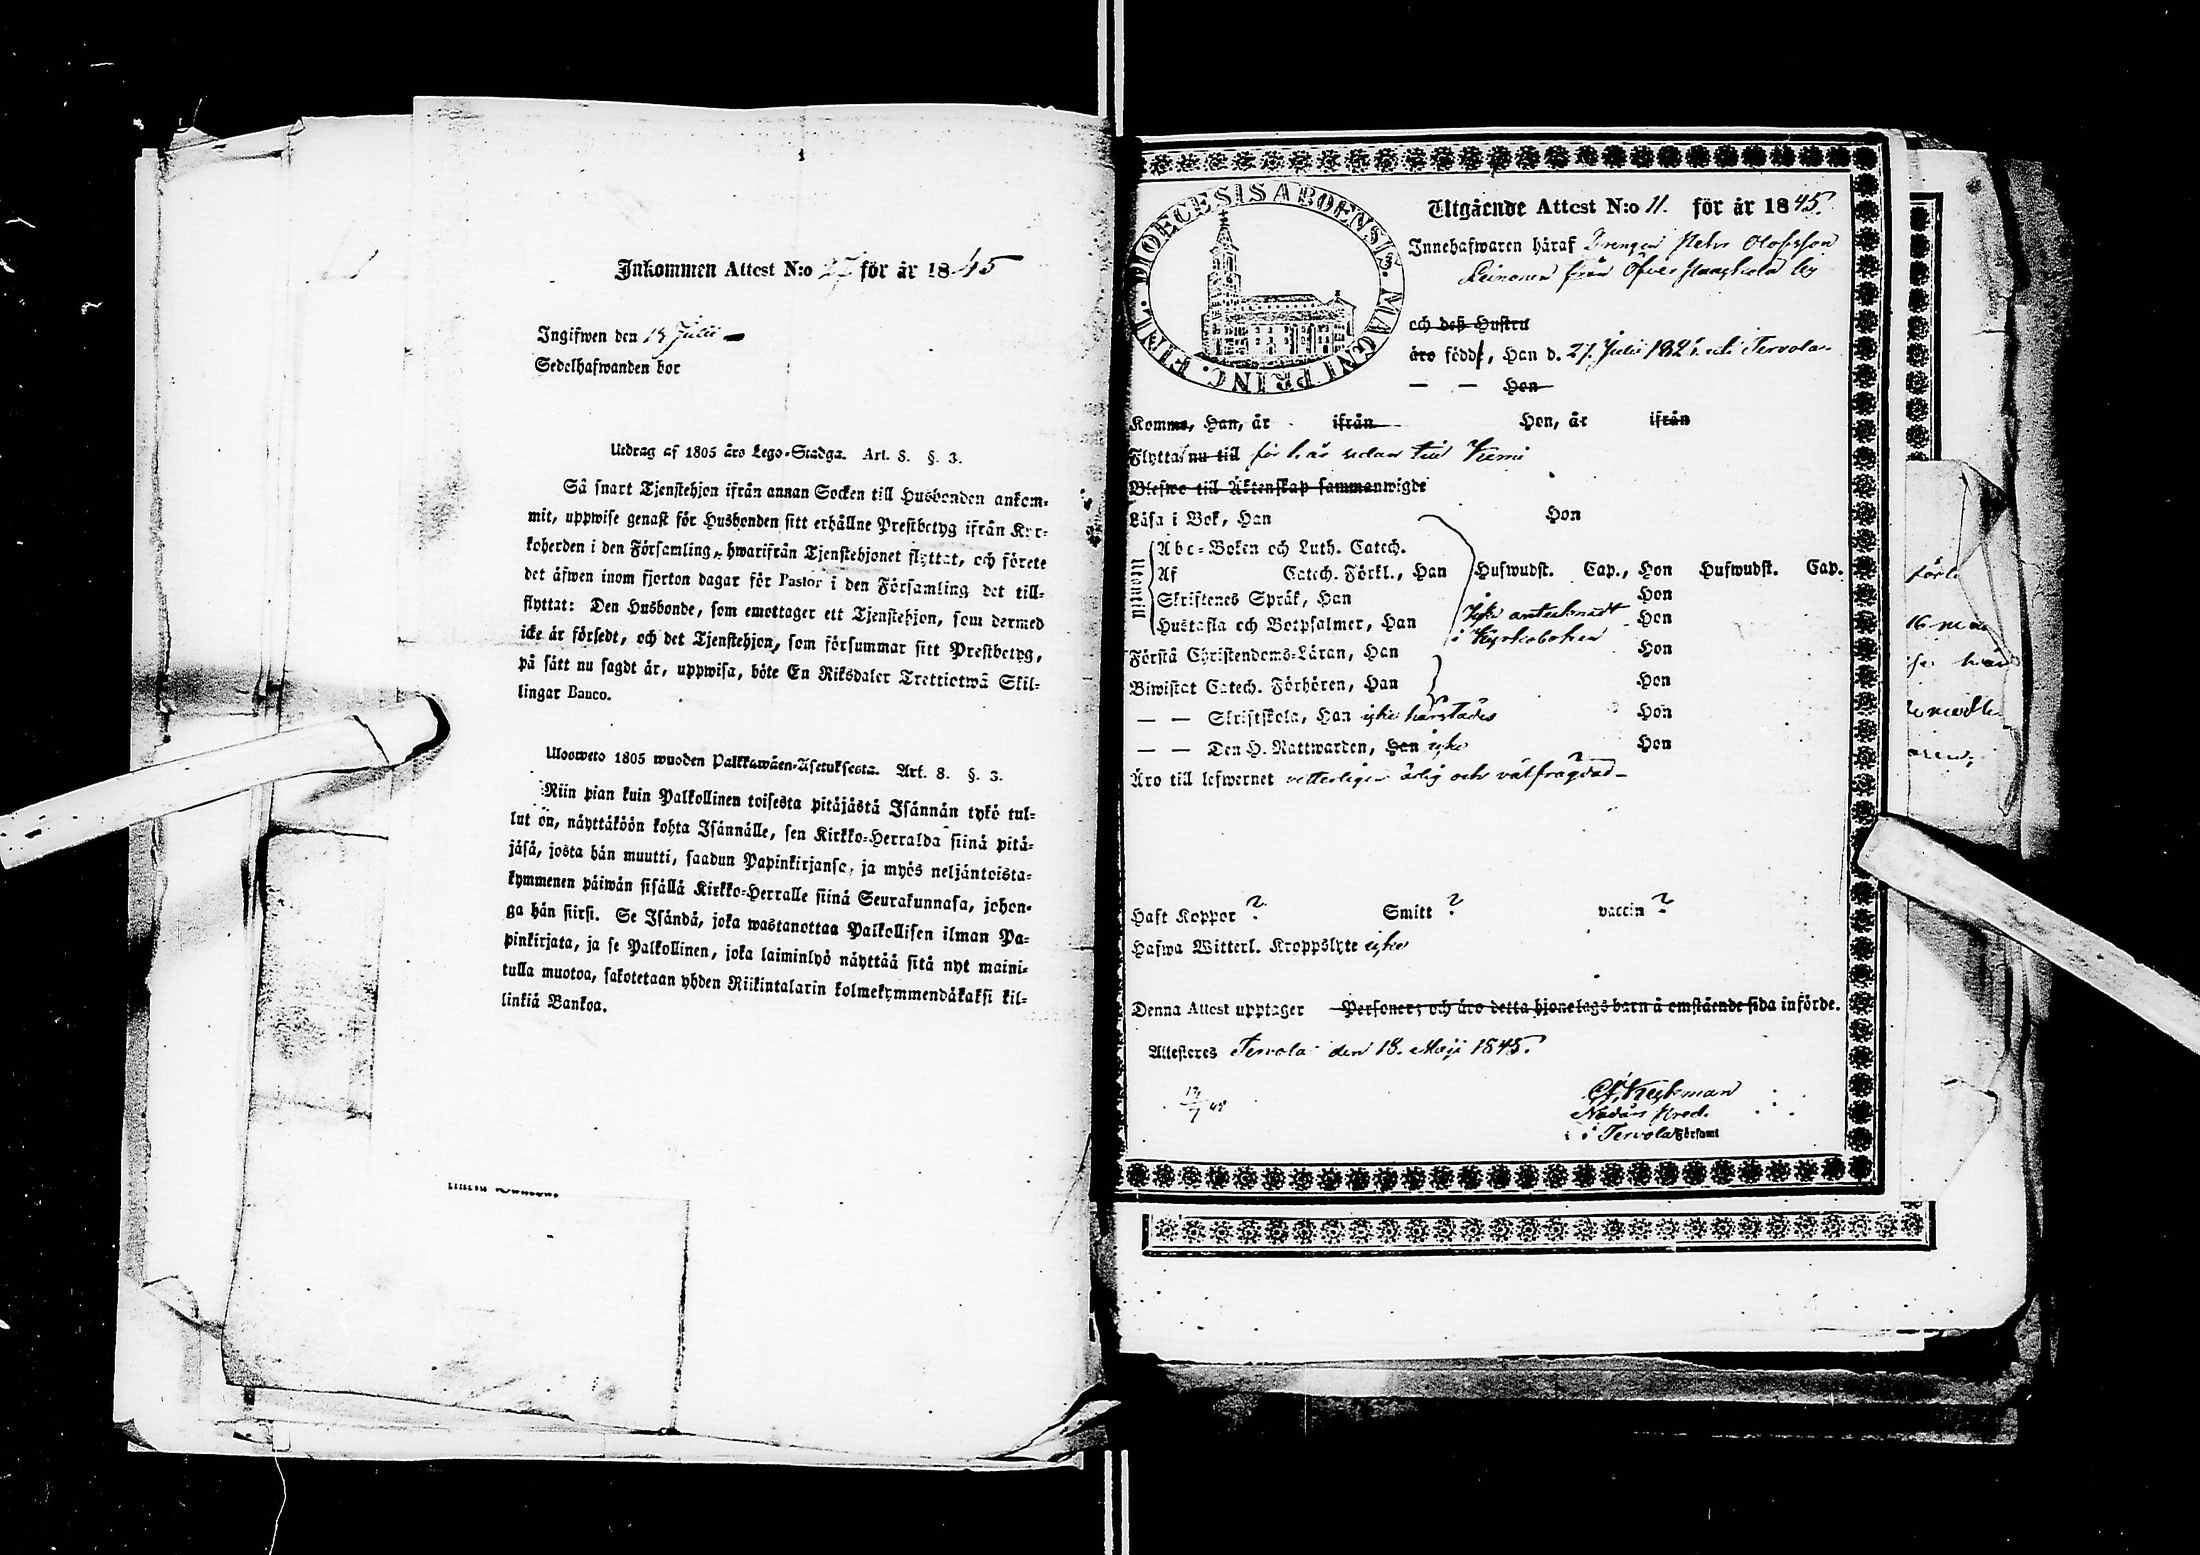 Inkommen Attest N:o för år 1845
Ingifwen den 13 Julii
Sedelhafwanden bor
Utdrag af 1805 års Lego-Stadga. Art. 8. §. 3.
Så snart Tjenstehjon ifrån annan Socken till Husbonden ankom-
mit, uppwise genast för Husbonden sitt erhållne Prestbetyg ifrån Kyr-
koherden i den Församling, hwarifrån Tjenstehjonet flyttat, och förete
det äfwen inom fjorton dagar för Pastor i den Församling det till-
flyttat: Den Husbonde, som emottager ett Tjenstehjon, som dermed
icke är försedt, och det Tjenstehjon, som försummar sitt Prestbetyg,
på sätt nu sagdt är, uppwisa, böte En Riksdaler Trettiotwå Skil-
lingar Banco.
Ulosweto 1805 wuoden Palkkawäen-Asetuksesta. Art. 8. §. 3.
Niin pian kuin Palkollinen toisesta pitäjästä Isännän tykö tul-
lut on, näyttäköön kohta Isännälle, sen Kirkko-Herralda siinä pitä-
jäsä, josta hän muutti, saadun Papinkirjansa, ja myös neljäntoista-
kymmenen päiwän sisällä Kirkko-Herralle siinä Seurakunnasa, johon-
ga hän siirsi. Se Isändä, joka wastanottaa Palkollisen ilman Pa-
pinkirjata, ja se Palkollinen, joka laiminlyö näyttää sitä nyt maini-
tulla muotoa, sakotetaan yhden Riikintalarin kolmekymmendäkaksi kil-
linkiä Bankoa.
DIOECESIS ABOENSIS. MAGNI PRINC. FINL.
Utgående Attest N:o 11. för år 1845.
Innehafwaren häraf Drengen Petter Olofsson
Leinonen från Öfver Paakkola by
och deß Hustru
äro födde, Han d. 27 Julii 182 uti Tervola
— — Hon
Komme, Han, år ifrån Hon, år ifrån
Flytta nu till för här sedan till Kemi
Blefwo till Äktenskap sammanwigde
Läsa i Bok, Han Hon
Utantill
Abc-Boken och Luth. Catech.
Af Catech. Förkl., Han Hufwudst. Cap., Hon Hufwudst. Cap.
Skriftenes Språk, Han Hon
Hustafla och Botpsalmer, Han Icke antecknadt Hon
i Kyrkoboken
Förstå Christendoms-Läran, Han Hon
Biwistat Catech. Förhören, Han Hon
— — Skriftskola, Han icke härstädes Hon
— — Den H. Nattwarden, Han icke Hon
Äro till lefwernet vetterligen ärlig och välfrägdad
Haft Koppor ? Smitt ? vaccin ?
Hafwa Witterl. Kroppslyte icke
Denna Attest upptager Personer; och äro detta hjonelags barn å omstående sida införde.
Attesteres Tervola den 18. Maji 1845.
13/7 45
Heykman
Nådårs Pred.
i Tervola Församl